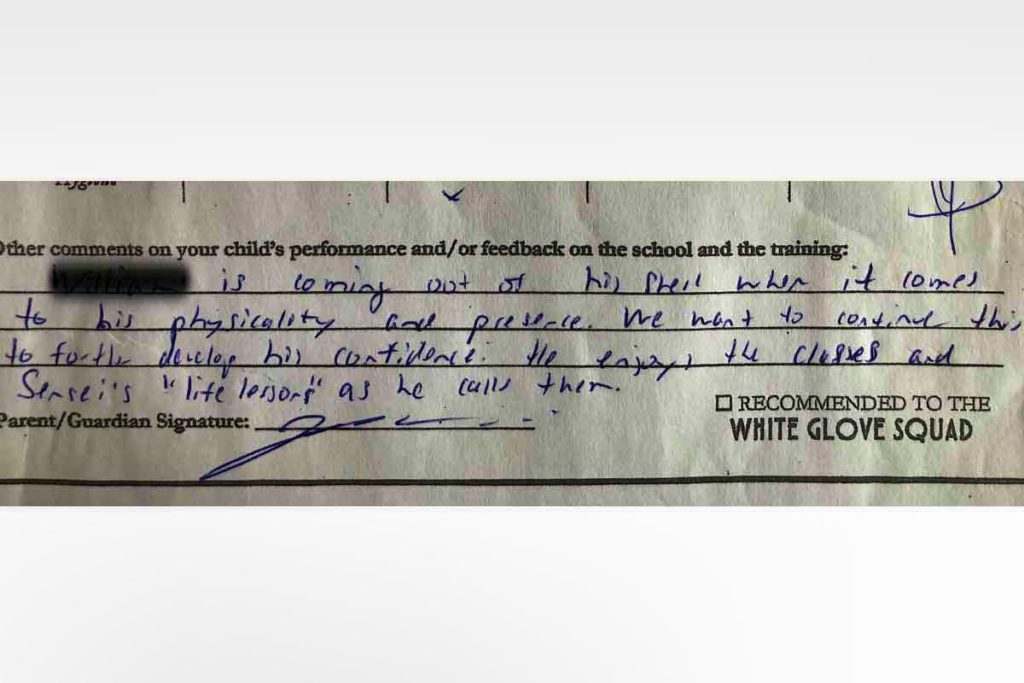 Hygiene
Other comments on your child's performance and/or feedback on the school and the training:
is coming out of his shell when it comes
to his physicality and presence. We want to continue this
to further develop his confidence. He enjoys the classes and
Sensei's "life lessons" as he calls them.
Parent/Guardian Signature:
☐ RECOMMENDED TO THE
WHITE GLOVE SQUAD